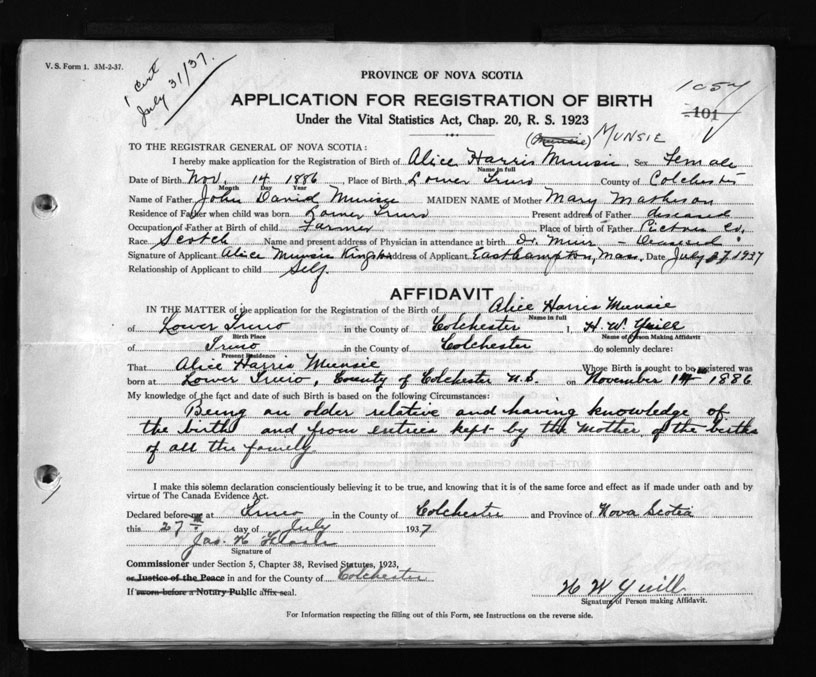 V. S. Form 1. 3M-2-37.
1 Cert
July 31/37.
PROVINCE OF NOVA SCOTIA
1054
101
APPLICATION FOR REGISTRATION OF BIRTH
Under the Vital Statistics Act, Chap. 20, R. S. 1923
(Munsie) MUNSIE
TO THE REGISTRAR GENERAL OF NOVA SCOTIA:
I hereby make application for the Registration of Birth of Alice Harris Munsie Sex Female
Name in full
Date of Birth Nov. 14 1886 Place of Birth Lower Truro County of Colchester
Month Day Year
Name of Father John David Munsie MAIDEN NAME of Mother Mary Matheson
Residence of Father when child was born Lower Truro Present address of Father deceased
Occupation of Father at Birth of child Farmer Place of birth of Father Pictou Co.
Race Scotch Name and present address of Physician in attendance at birth Dr. Muir - Deceased
Signature of Applicant Alice Munsie Address of Applicant Easthampton, Mass. Date July 27 1937
Relationship of Applicant to child Self.
AFFIDAVIT
IN THE MATTER of the application for the Registration of Birth of Alice Harris Munsie
Name in full
of Lower Truro in the County of Colchester I, H. W. Yuill
Birth Place Name of Person Making Affidavit
of Truro in the County of Colchester do solemnly declare:
Present Residence
That Alice Harris Munsie Whose Birth is sought to be registered was
born at Lower Truro, County of Colchester N.S. on November 14th 1886
My knowledge of the fact and date of such Birth is based on the following Circumstances:
Being an older relative and having knowledge of
the birth and from entries kept by the Mother, of the births
of all the family
I make this solemn declaration conscientiously believing it to be true, and knowing that it is of the same force and effect as if made under oath and by
virtue of The Canada Evidence Act.
Declared before me at Truro in the County of Colchester and Province of Nova Scotia
this 27th day of July 1937
Jas. H.
Signature of
Commissioner under Section 5, Chapter 38, Revised Statutes, 1923,
or Justice of the Peace in and for the County of Colchester
If sworn before a Notary Public affix seal.
H W Yuill
Signature of Person making Affidavit.
For Information respecting the filling out of this Form, see Instructions on the reverse side.